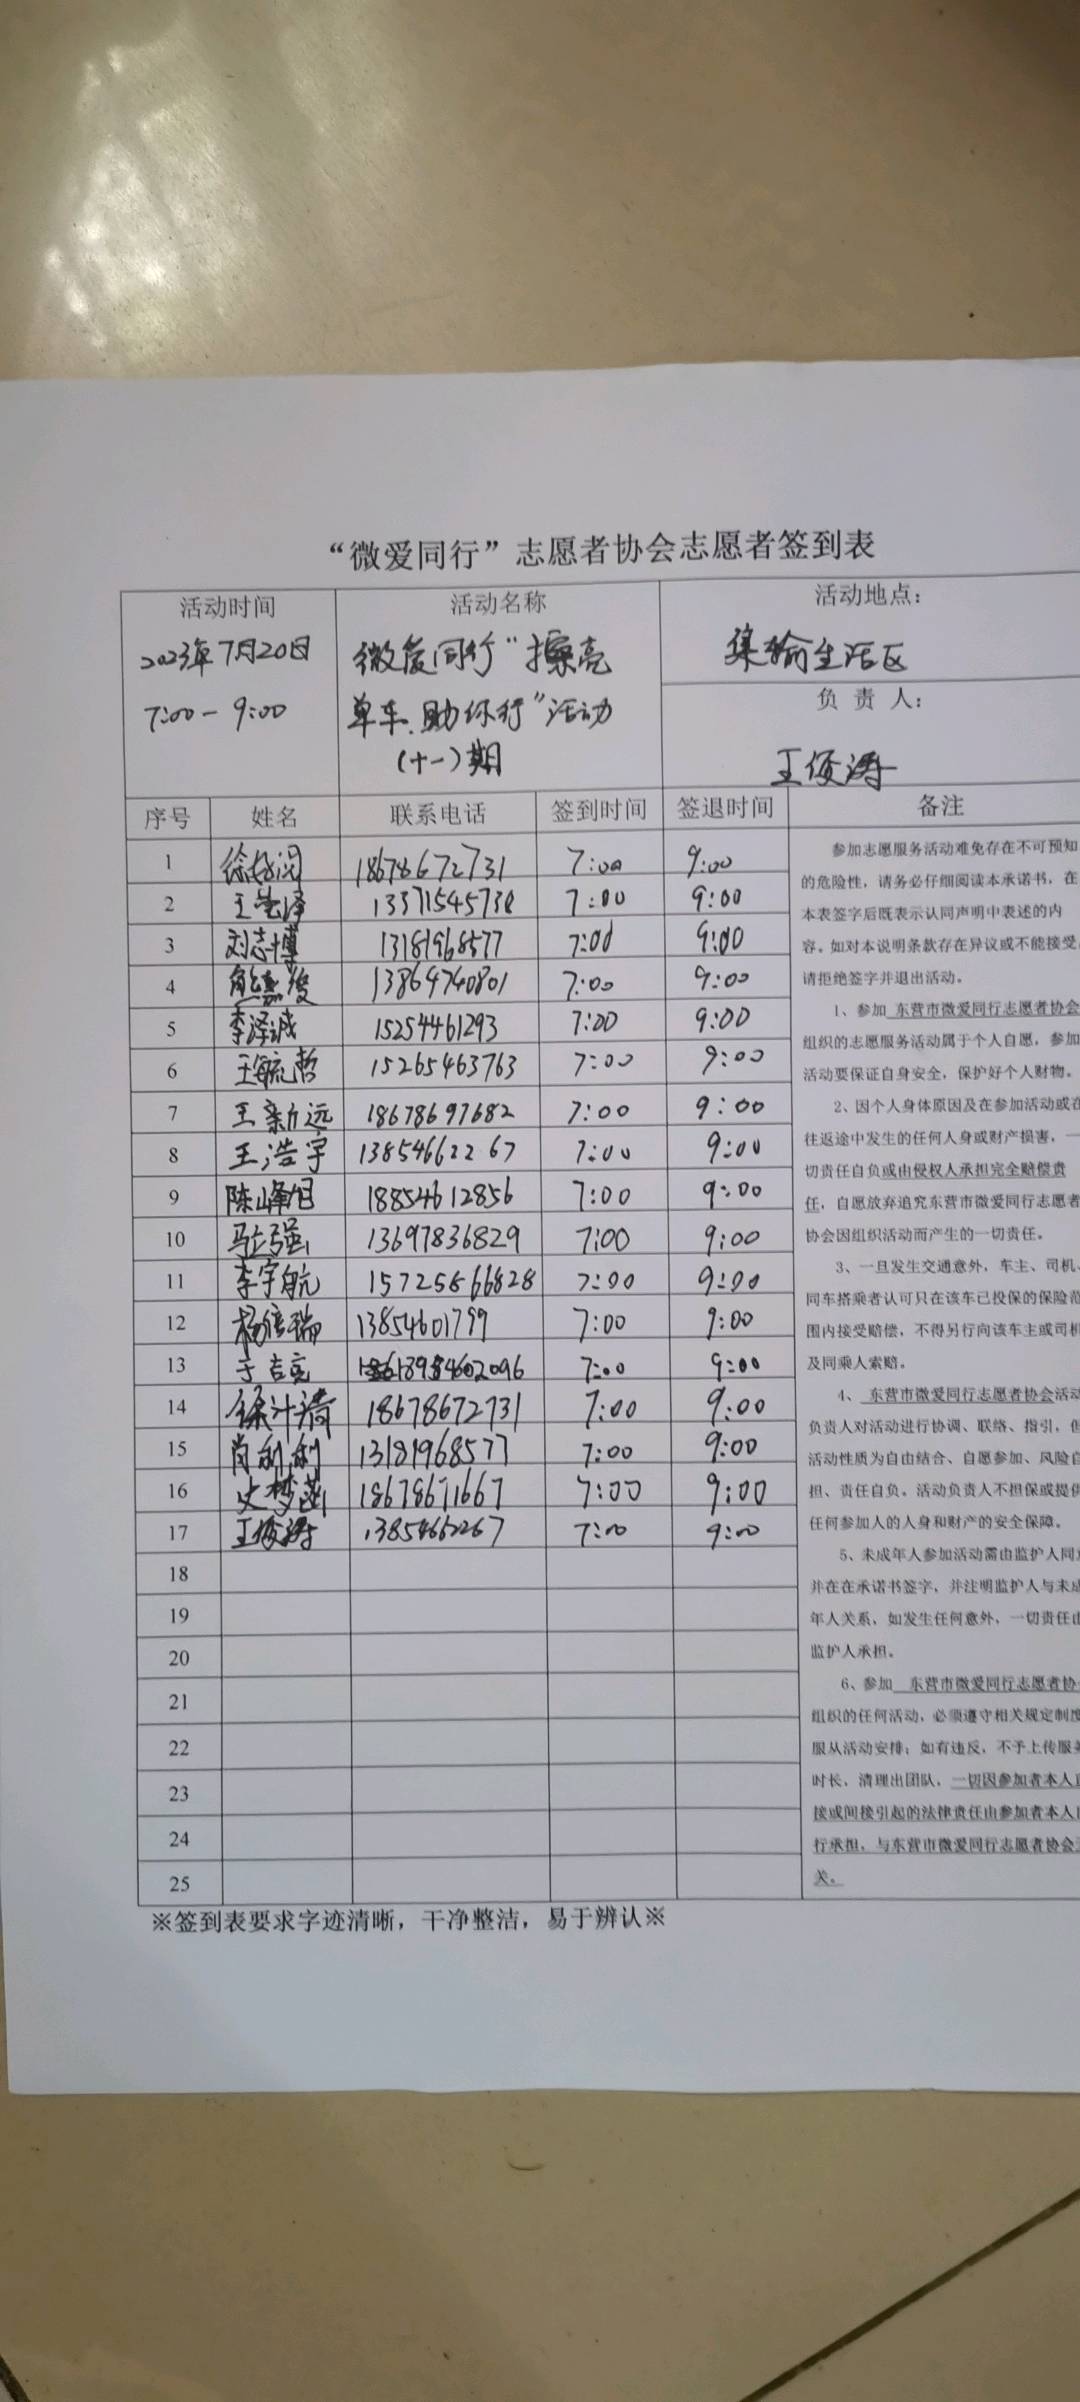 “微爱同行”志愿者协会志愿者签到表
活动时间
2023年7月20日
7:00-9:00
活动名称
微爱同行“擦亮
单车、助你行”活动
(十一)期
活动地点：
集输生活区
负 责 人：
王俊涛
序号 姓名 联系电话 签到时间 签退时间 备注
1 18678672731 7:00 9:00
2 13371545738 7:00 9:00
3 刘志博 13181968577 7:00 9:00
4 13864740801 7:00 9:00
5 李泽诚 15254461293 7:00 9:00
6 王毓哲 15265463763 7:00 9:00
7 王新远 18678697682 7:00 9:00
8 王浩宇 13854662267 7:00 9:00
9 陈峰旭 18854612856 7:00 9:00
10 马立强 13697836829 7:00 9:00
11 李宇航 15725866828 7:00 9:00
12 13854601799 7:00 9:00
13 于吉亮 7:00 9:00
14 徐汁清 18678672731 7:00 9:00
15 肖利利 13181968577 7:00 9:00
16 史梦函 18678671667 7:00 9:00
17 王俊涛 7:00 9:00
18
19
20
21
22
23
24
25
参加志愿服务活动难免存在不可预知
的危险性，请务必仔细阅读本承诺书，在
本表签字后既表示认同声明中表述的内
容。如对本说明条款存在异议或不能接受，
请拒绝签字并退出活动。
1、参加 东营市微爱同行志愿者协会
组织的志愿服务活动属于个人自愿，参加
活动要保证自身安全，保护好个人财物。
2、因个人身体原因及在参加活动或在
往返途中发生的任何人身或财产损害，一
切责任自负或由侵权人承担完全赔偿责
任，自愿放弃追究东营市微爱同行志愿者
协会因组织活动而产生的一切责任。
3、一旦发生交通意外，车主、司机、
同车搭乘者认可只在该车已投保的保险范
围内接受赔偿，不得另行向该车主或司机
及同乘人索赔。
4、 东营市微爱同行志愿者协会活动
负责人对活动进行协调、联络、指引，但
活动性质为自由结合、自愿参加、风险自
担、责任自负。活动负责人不担保或提供
任何参加人的人身和财产的安全保障。
5、未成年人参加活动需由监护人同意
并在在承诺书签字，并注明监护人与未成
年人关系，如发生任何意外，一切责任由
监护人承担。
6、参加 东营市微爱同行志愿者协
组织的任何活动，必须遵守相关规定制度
服从活动安排；如有违反，不予上传服务
时长，清理出团队，一切因参加者本人直
接或间接引起的法律责任由参加者本人自
行承担，与东营市微爱同行志愿者协会无
关。
※签到表要求字迹清晰，干净整洁，易于辨认※